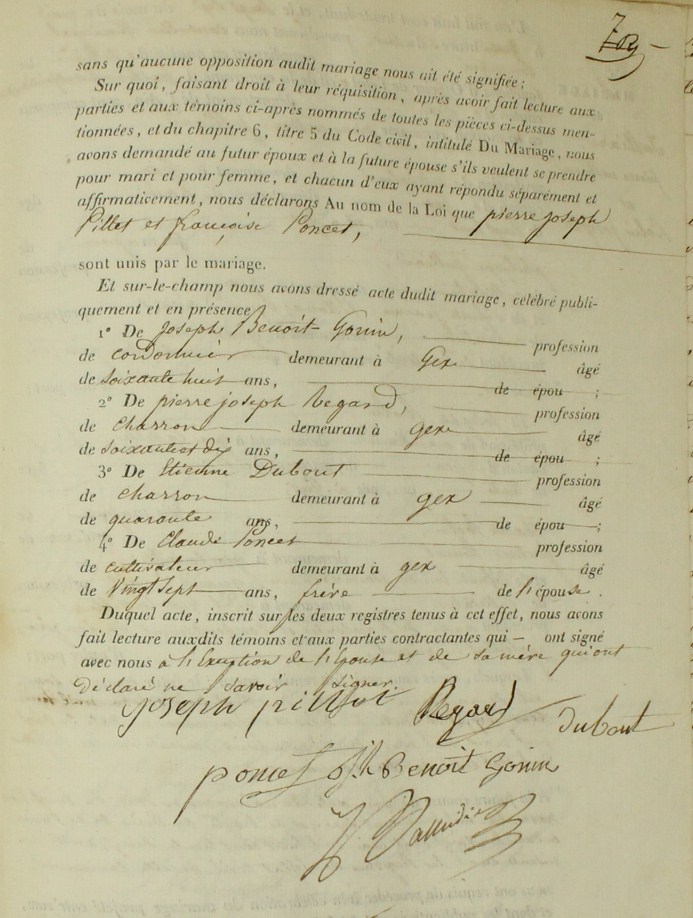 sans qu'aucune opposition audit mariage nous ait été signifiée ;
Sur quoi, faisant droit à leur réquisition, après avoir fait lecture aux
parties et aux témoins ci-après nommés de toutes les pièces ci-dessus men-
tionnées, et du chapitre 6, titre 5 du Code civil, intitulé Du Mariage, nous
avons demandé au futur époux et à la future épouse s'ils veulent se prendre
pour mari et pour femme, et chacun d'eux ayant répondu séparément et
affirmativement, nous déclarons Au nom de la Loi que pierre joseph
Pillet et françoise Poncet,
sont unis par le mariage.
Et sur-le-champ nous avons dressé acte dudit mariage, célébré publi-
quement et en présence
1° De Joseph Benoit Gonin, profession
de cordonnier demeurant à Gex âgé
de soixante huit ans, de épou ;
2° De pierre joseph Regard, profession
de charron demeurant à gex âgé
de soixante et dix ans, de épou ;
3° De Etienne Dubout profession
de charron demeurant à gex âgé
de quarante ans, de épou ;
4° De Claude Poncet profession
de cultivateur demeurant à gex âgé
de vingt sept ans, frère de l'épouse.
Duquel acte, inscrit sur les deux registres tenus à cet effet, nous avons
fait lecture auxdits témoins et aux parties contractantes qui — ont signé
avec nous à l'Exception de l'Epouse et de sa mère qui ont
déclaré ne savoir signer.
joseph pillet Regard Dubout
poncet Benoit Gonin